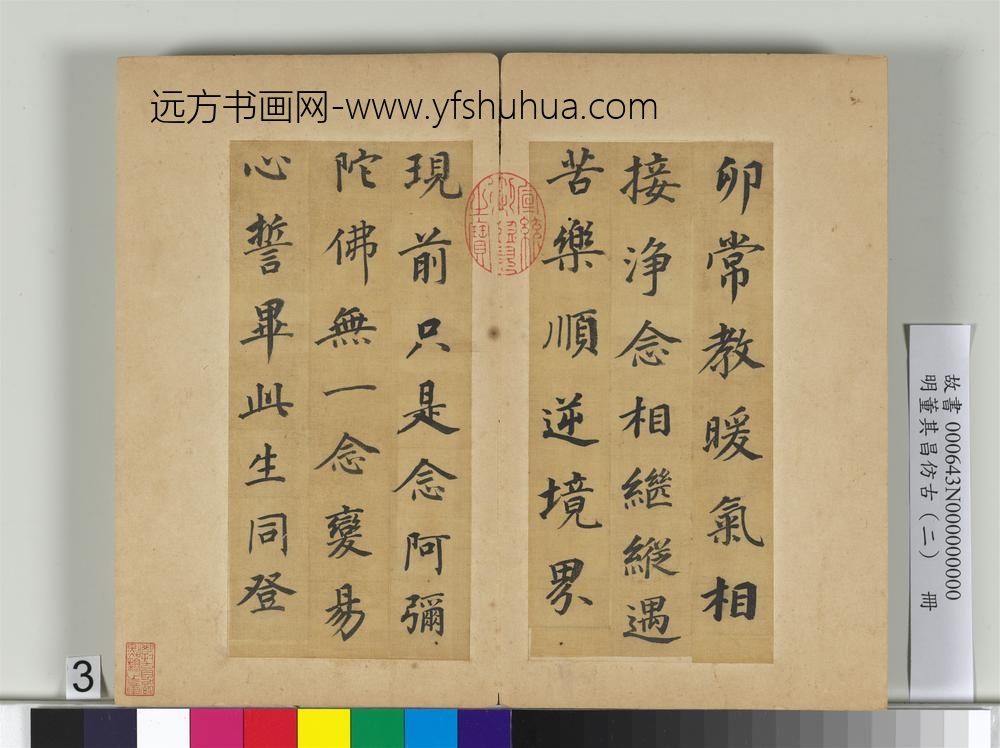 远方书画网-www.yfshuhua.com
卵常教暖氣相
接淨念相繼縱遇
苦樂順逆境界
現前只是念阿彌
陀佛無一念變易
心誓畢此生同登
宣統御覽之寶
故書 000643N000000000
明董其昌仿古（二） 冊
3